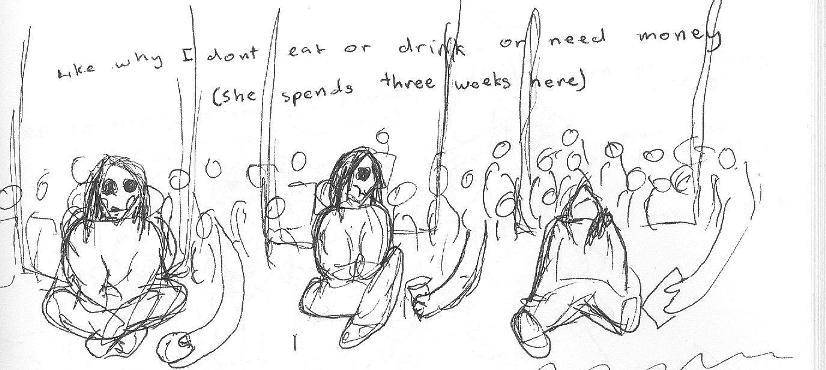 Like why I dont eat or drink or need money
(she spends three weeks here)